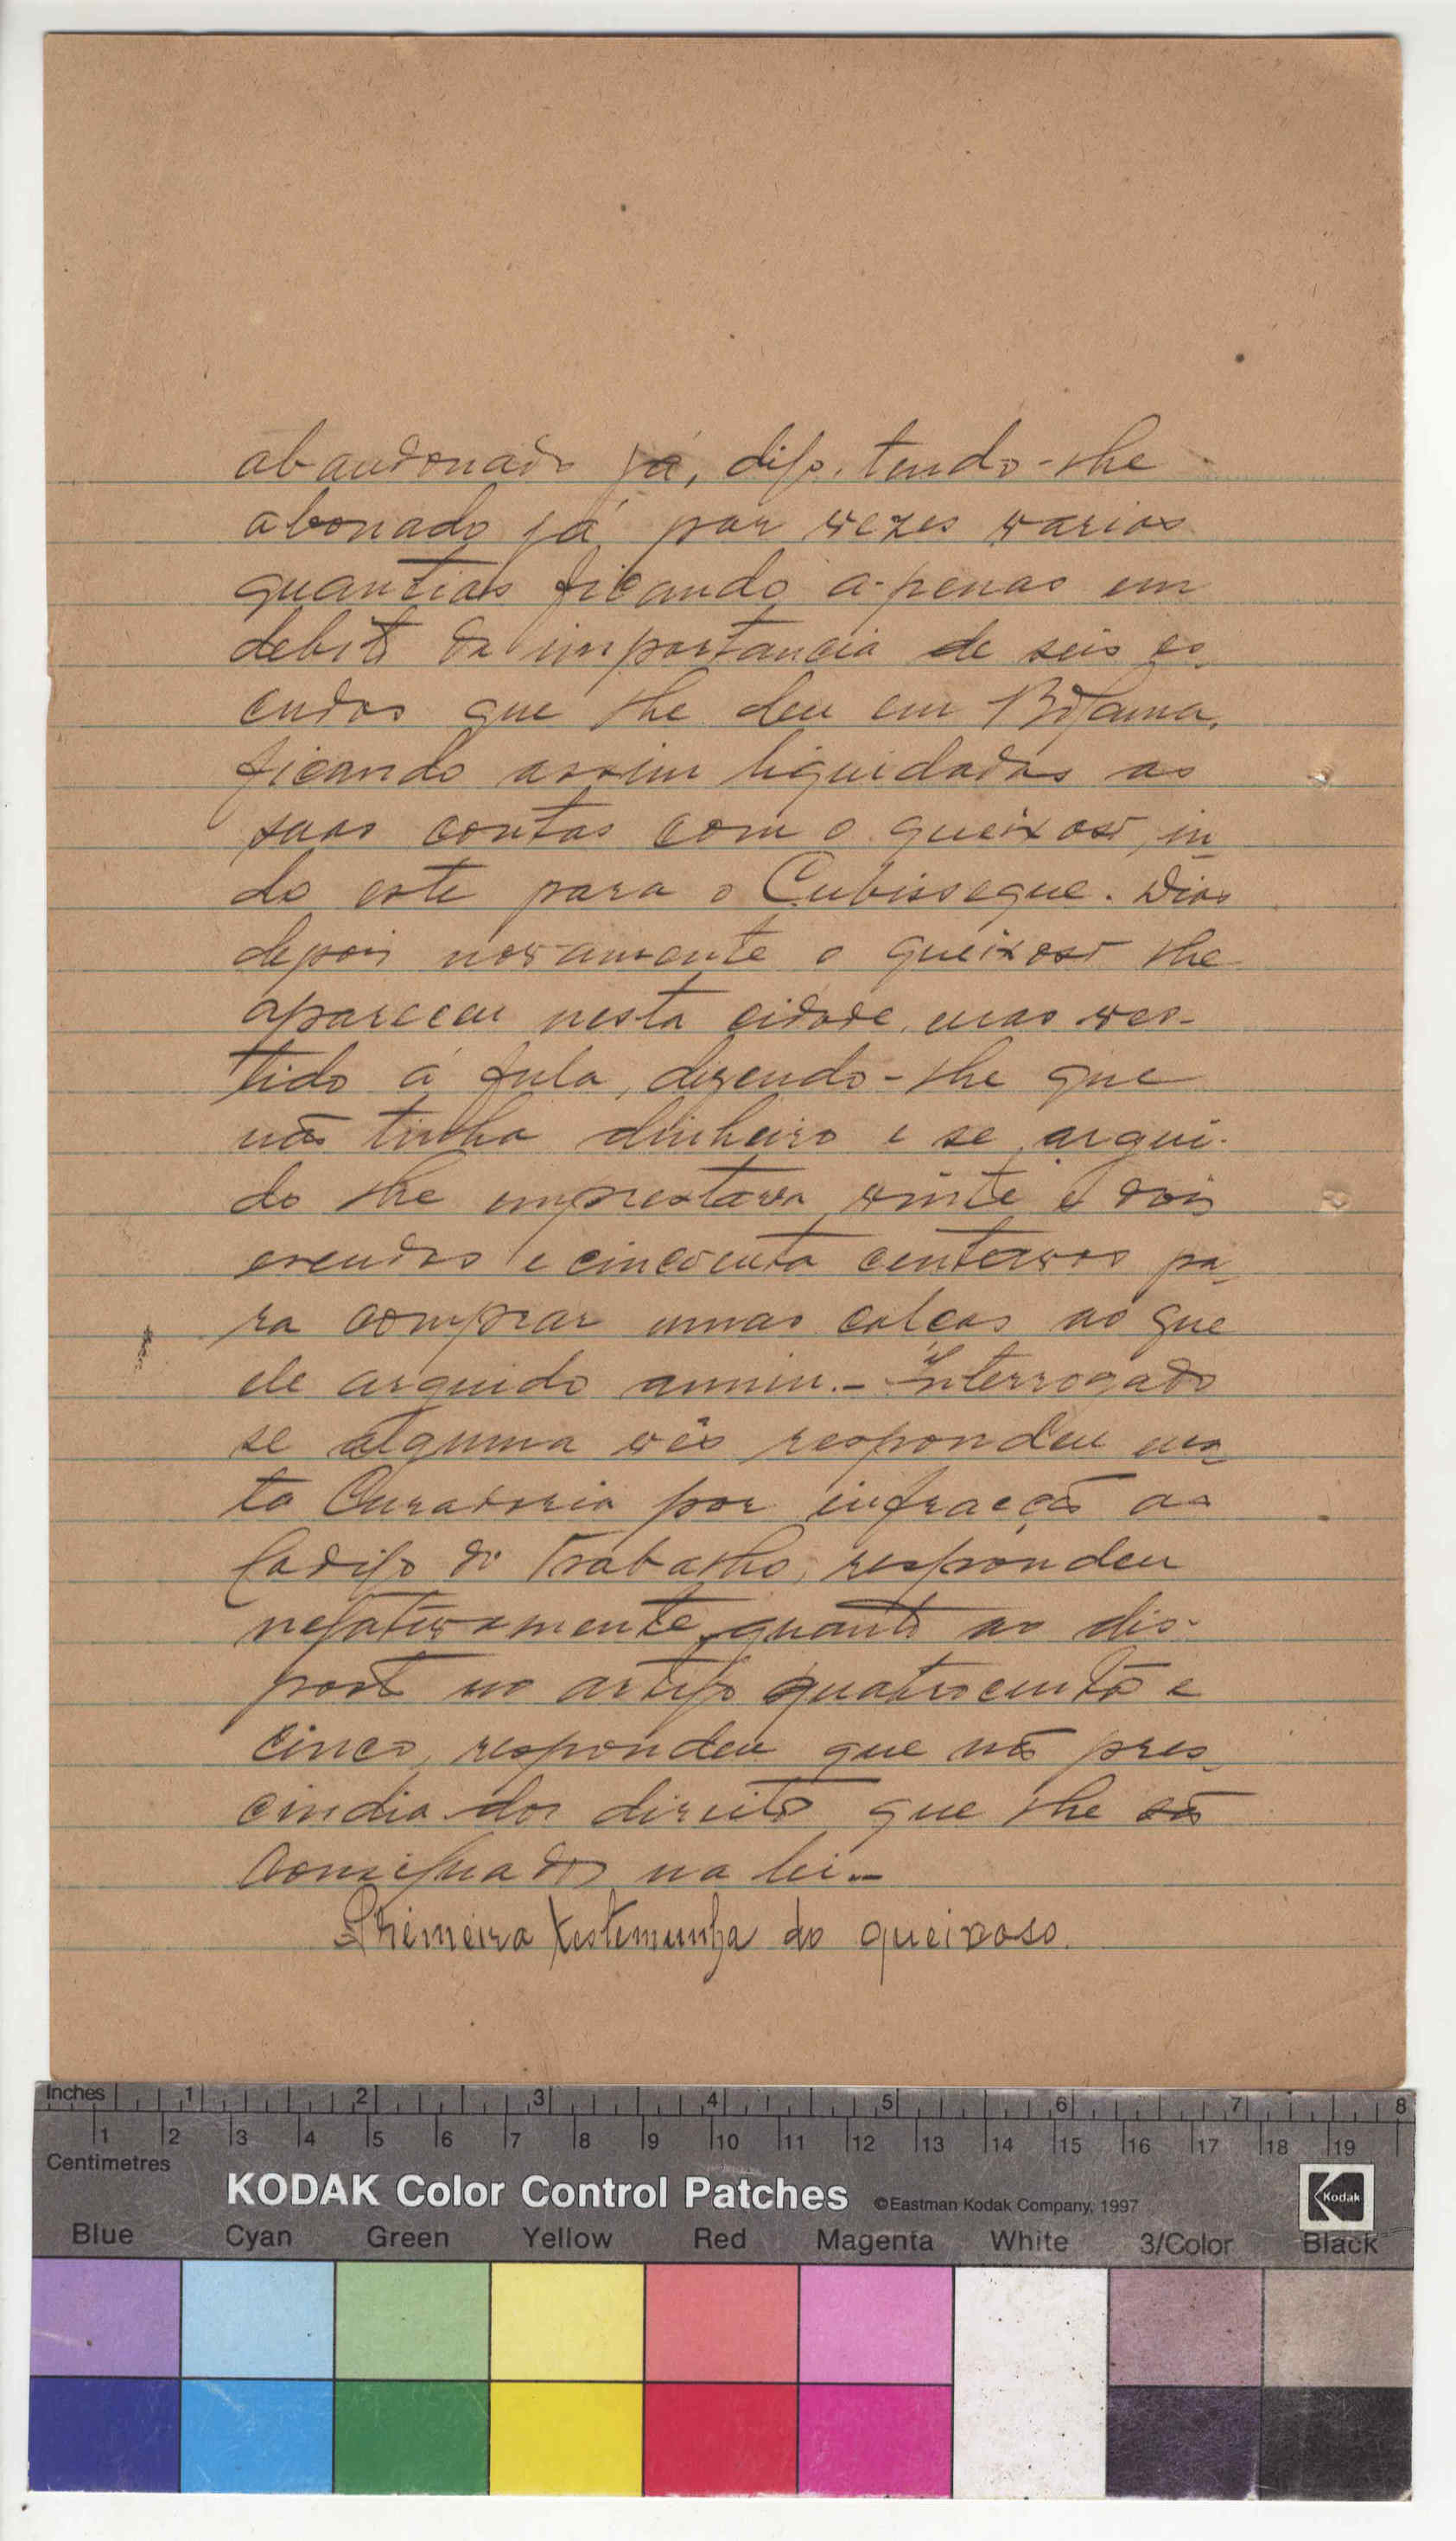 abandonado já, digo, tendo-lhe
abonado já por vezes varias
quantias ficando a-penas em
debito da importancia de seis es
cudos que lhe deu em Bafama,
ficando assim liquidadas as
suas contas com o queixoso, in
do este para o Cubisseque. Dias
depois novamente o queixoso lhe
apareceu nesta cidade, mas ves-
tido á fula, dizendo-lhe que
não tinha dinheiro e se argui-
do lhe emprestava vinte e dois
escudos e cincoenta centavos pa
ra comprar umas calças ao que
ele arguido anuiu.- Interrogado
se alguma vês respondeu nes
ta Curadoria por infracção ao
Codigo do Trabalho, respondeu
negativamente, quanto ao dis-
posto no artigo quatrocentos e
cinco, respondeu que não pres
cindia dos direitos que lhe são
consignados na lei.-
Primeira testemunha do queixoso.
Inches 1 2 3 4 5 6 7 8
1 2 3 4 5 6 7 8 9 10 11 12 13 14 15 16 17 18 19
Centimetres
KODAK Color Control Patches ©Eastman Kodak Company, 1997 Kodak
Blue Cyan Green Yellow Red Magenta White 3/Color Black